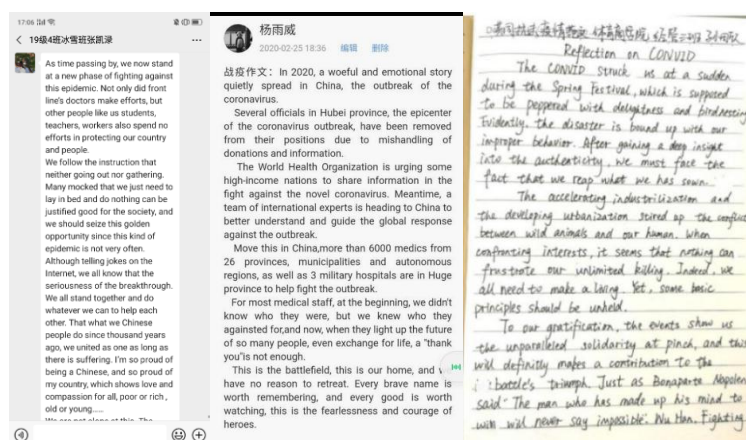 17:06
19级4班冰雪班张凯渌
As time passing by, we now stand
at a new phase of fighting against
this epidemic. Not only did front
line's doctors make efforts, but
other people like us students,
teachers, workers also spend no
efforts in protecting our country
and people.
We follow the instruction that
neither going out nor gathering.
Many mocked that we just need to
lay in bed and do nothing can be
justified good for the society, and
we should seize this golden
opportunity since this kind of
epidemic is not very often.
Although telling jokes on the
Internet, we all know that the
seriousness of the breakthrough.
We all stand together and do
whatever we can to help each
other. That what we Chinese
people do since thousand years
ago, we united as one as long as
there is suffering. I'm so proud of
being a Chinese, and so proud of
my country, which shows love and
compassion for all, poor or rich ,
old or young......
We are not alone at this. The
杨雨威
2020-02-25 18:36 编辑 删除
战疫作文：In 2020, a woeful and emotional story
quietly spread in China, the outbreak of the
coronavirus.
Several officials in Hubei province, the epicenter
of the coronavirus outbreak, have been removed
from their positions due to mishandling of
donations and information.
The World Health Organization is urging some
high-income nations to share information in the
fight against the novel coronavirus. Meantime, a
team of international experts is heading to China to
better understand and guide the global response
against the outbreak.
Move this in China,more than 6000 medics from
26 provinces, municipalities and autonomous
regions, as well as 3 military hospitals are in Huge
province to help fight the outbreak.
For most medical staff, at the beginning, we didn't
know who they were, but we knew who they
againsted for,and now, when they light up the future
of so many people, even exchange for life, a "thank
you"is not enough.
This is the battlefield, this is our home, and
have no reason to retreat. Every brave name is
worth remembering, and every good is worth
watching, this is the fearlessness and courage of
heroes.
Reflection on CONVID
The CONVID struck us at a sudden
during the Spring Festival, which is supposed
to be peppered with delightness and
Evidently, the disaster is bound up with our
improper behavior. After gaining a deep insight
into the authenticity, we must face the
fact that we reap what we has sown.
The accelerating industrilization and
the developing urbanization stired up the conflict
between wild animals and our human. When
confronting interests, it seems that nothing can
frustrate our unlimited killing. Indeed, we
all need to make a living. Yet, some basic
principles should be unheld.
To our gratification, the events show us
the unparalleled solidarity at pinch, and this
will definitly makes a contribution to the
battle's triumph. Just as Bonaparte Napolen
said "The man who has made up his mind to
win will never say impossible". Wu Han. Fighting